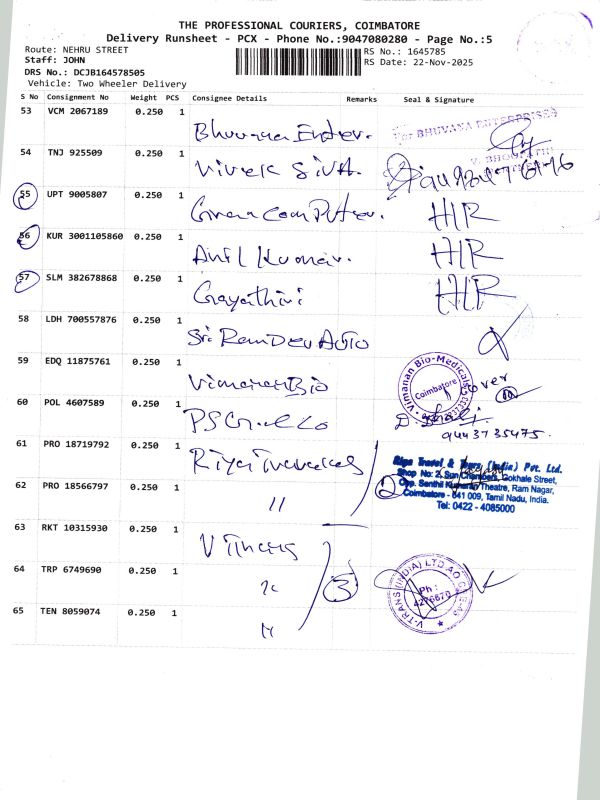 THE PROFESSIONAL COURIERS, COIMBATORE
Delivery Runsheet - PCX - Phone No.:9047080280 - Page No.:5
Route: NEHRU STREET
RS No.: 1645785
Staff: JOHN
RS Date: 22-Nov-2025
DRS No.: DCJB164578505
Vehicle: Two Wheeler Delivery
S No Consignment No Weight PCS Consignee Details Remarks Seal & Signature
53 VCM 2067189 0.250 1
Bhuvana Enter.
For BHUVANA ENTERPRISES
54 TNJ 925509 0.250 1
Vivek SivA.
55 UPT 9005807 0.250 1
Computer. H/R
56 KUR 3001105860 0.250 1
Anil Kumar. H/R
57 SLM 382678868 0.250 1
Gayathiri H/R
58 LDH 700557876 0.250 1
Sri Ram Dev Auto
59 EDQ 11875761 0.250 1
Vimanan Bio
Vimanan Bio-Medicals
Coimbatore
60 POL 4607589 0.250 1
9443735475.
61 PRO 18719792 0.250 1
Riya Travels
Riya Travel & Tours (India) Pvt. Ltd.
Shop No: 2, Sun Chambers, Gokhale Street,
Opp. Senthil Kumaran Theatre, Ram Nagar,
Coimbatore - 641 009, Tamil Nadu, India.
Tel: 0422 - 4085000
62 PRO 18566797 0.250 1
〃 2
63 RKT 10315930 0.250 1
V Trans
64 TRP 6749690 0.250 1
〃 3
V-TRANS (INDIA) LTD
Ph :
4276670
65 TEN 8059074 0.250 1
〃